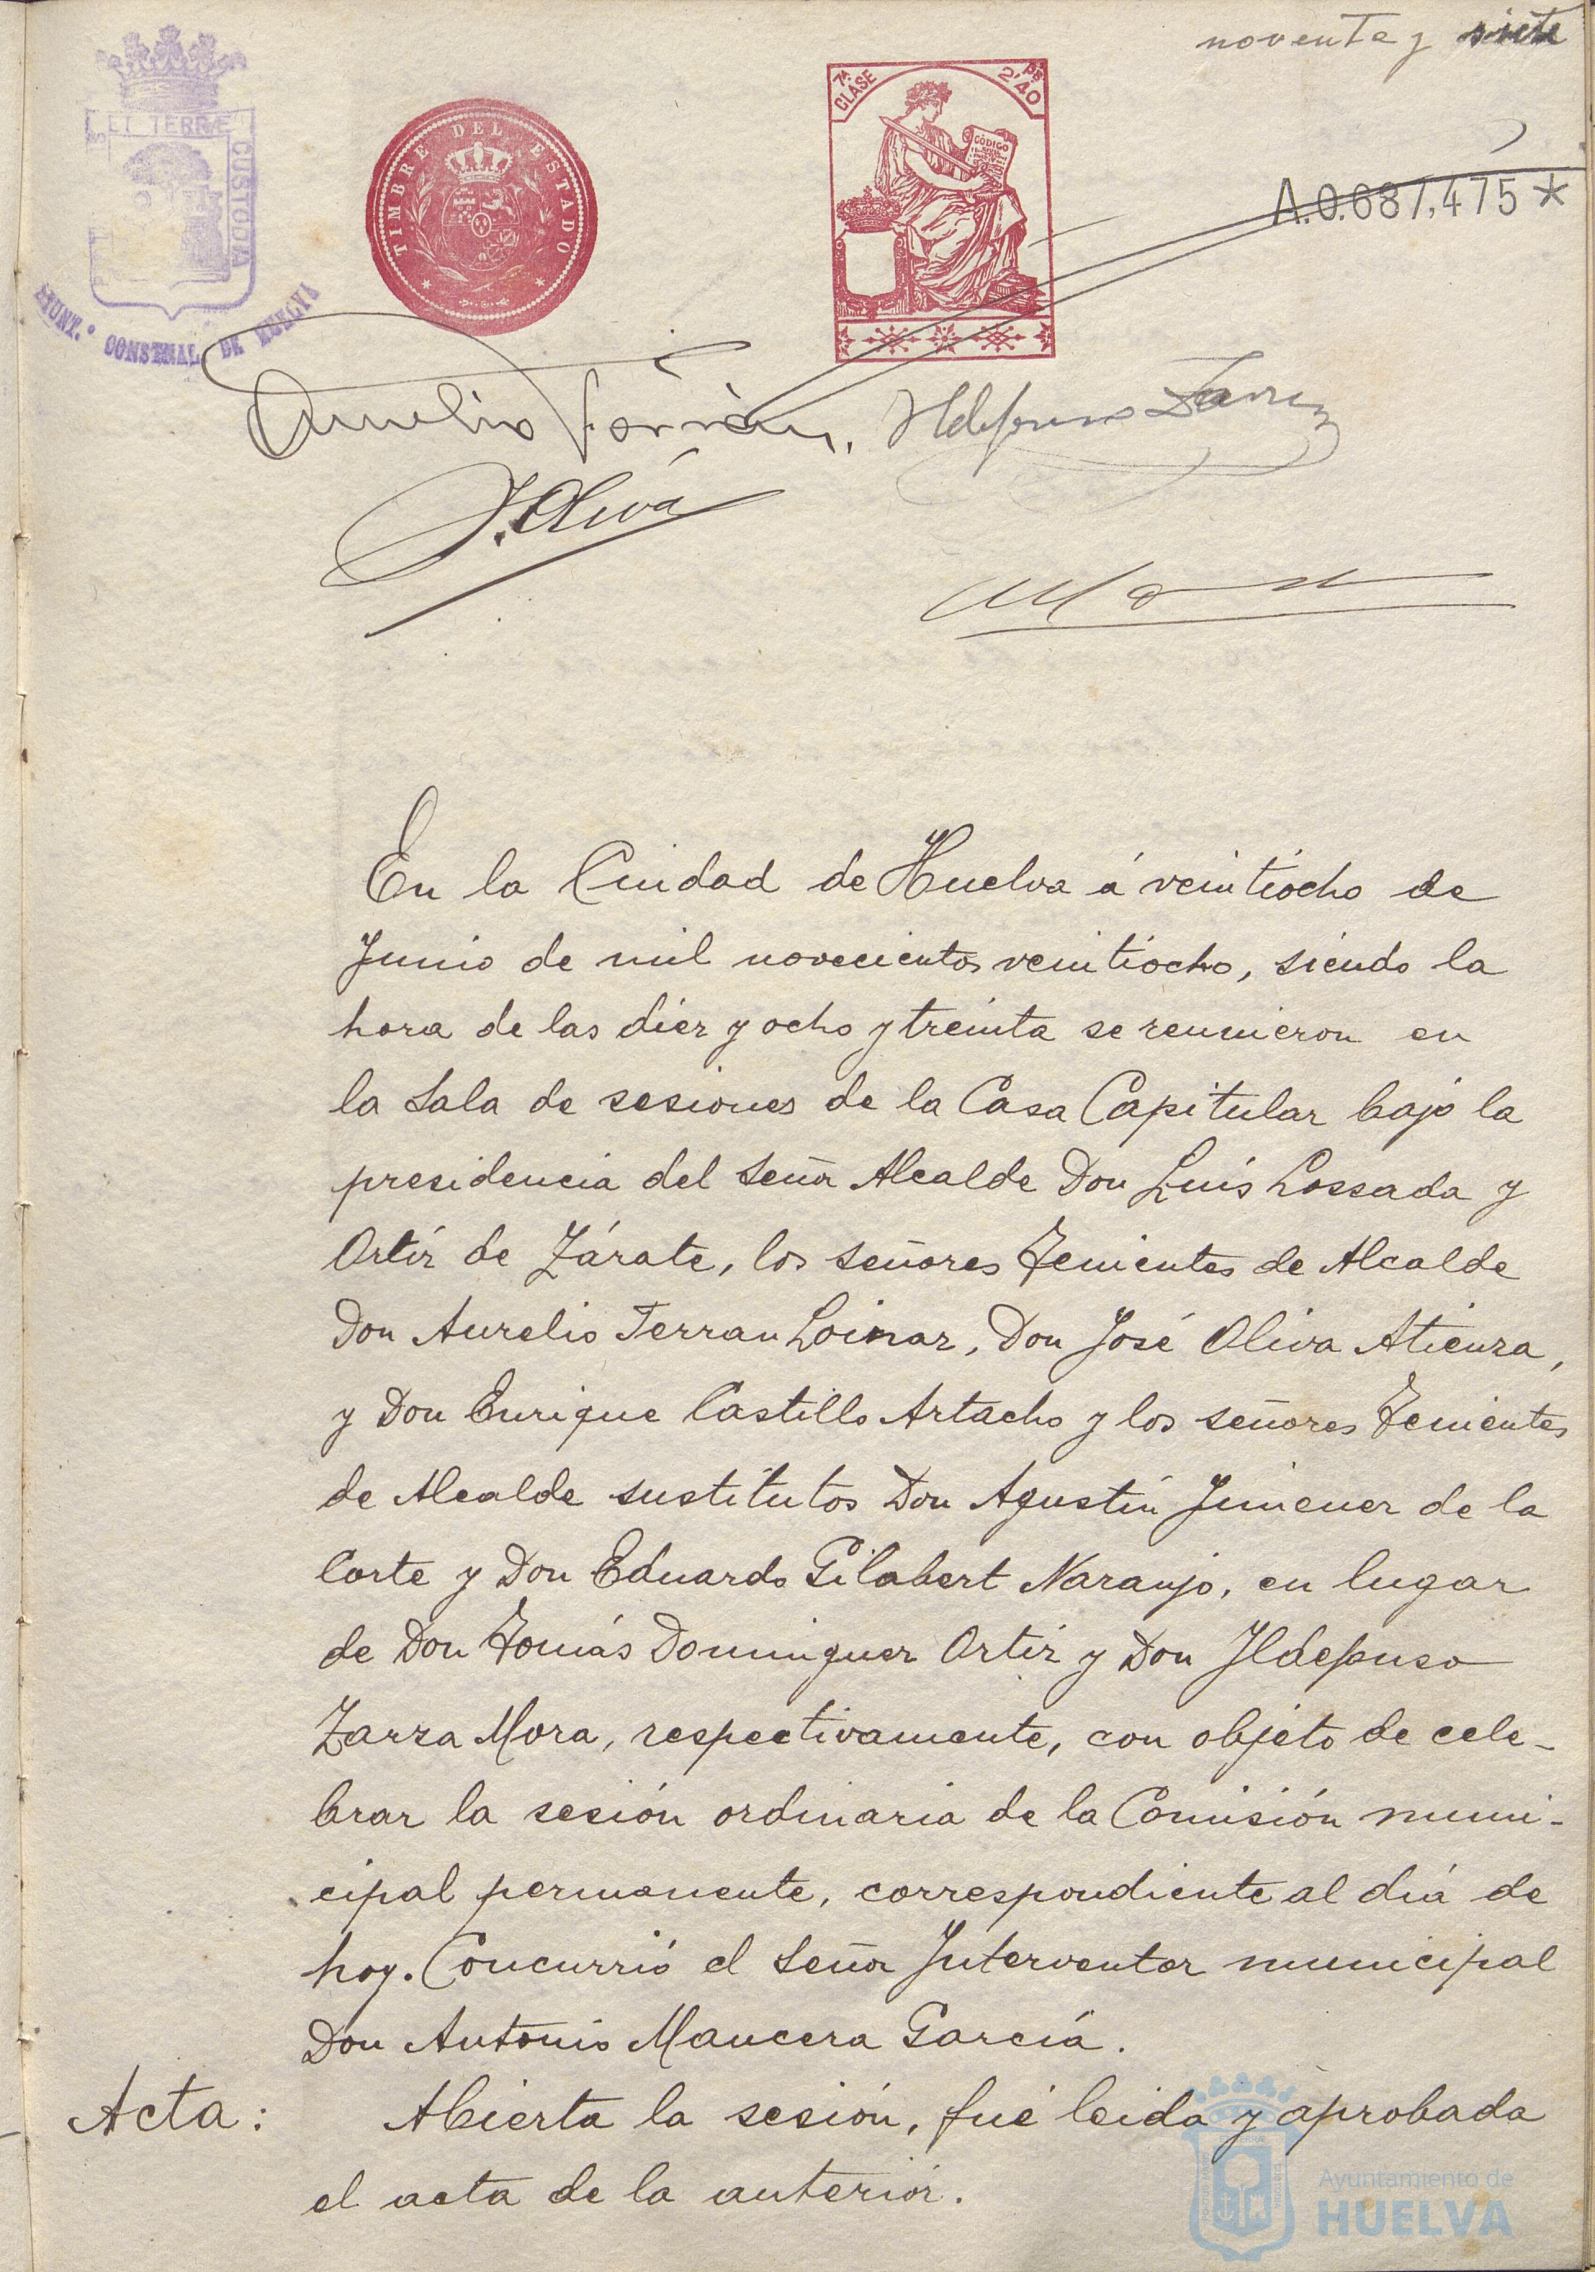 noventa y siete
ET TERRÆ
CUSTODIA
CONSTNAL DE HUELVA
TIMBRE DEL ESTADO
7ª CLASE
2'40
CÓDIGO
A.0.687,475 *
Aurelio Terrán. Ildefonso Zarza
J. Oliva
En la Ciudad de Huelva á veintiocho de
Junio de mil novecientos veintiocho, siendo la
hora de las diez y ocho y treinta se reunieron en
la Sala de sesiones de la Casa Capitular bajo la
presidencia del Señor Alcalde Don Luis Lossada y
Ortíz de Zárate, los señores Tenientes de Alcalde
Don Aurelio Terran Loinaz, Don José Oliva Atienza,
y Don Enrique Castillo Artacho y los señores Tenientes
de Alcalde sustitutos Don Agustín Jimenez de la
Corte y Don Eduardo Gilabert Naranjo, en lugar
de Don Tomás Dominguez Ortíz y Don Ildefonso
Zarza Mora, respectivamente, con objeto de cele-
brar la sesión ordinaria de la Comisión muni-
cipal permanente, correspondiente al día de
hoy. Concurrió el Señor Interventor municipal
Don Antonio Mancera García.
Acta: Abierta la sesión, fué leida y aprobada
el acta de la anterior.
Ayuntamiento de
HUELVA